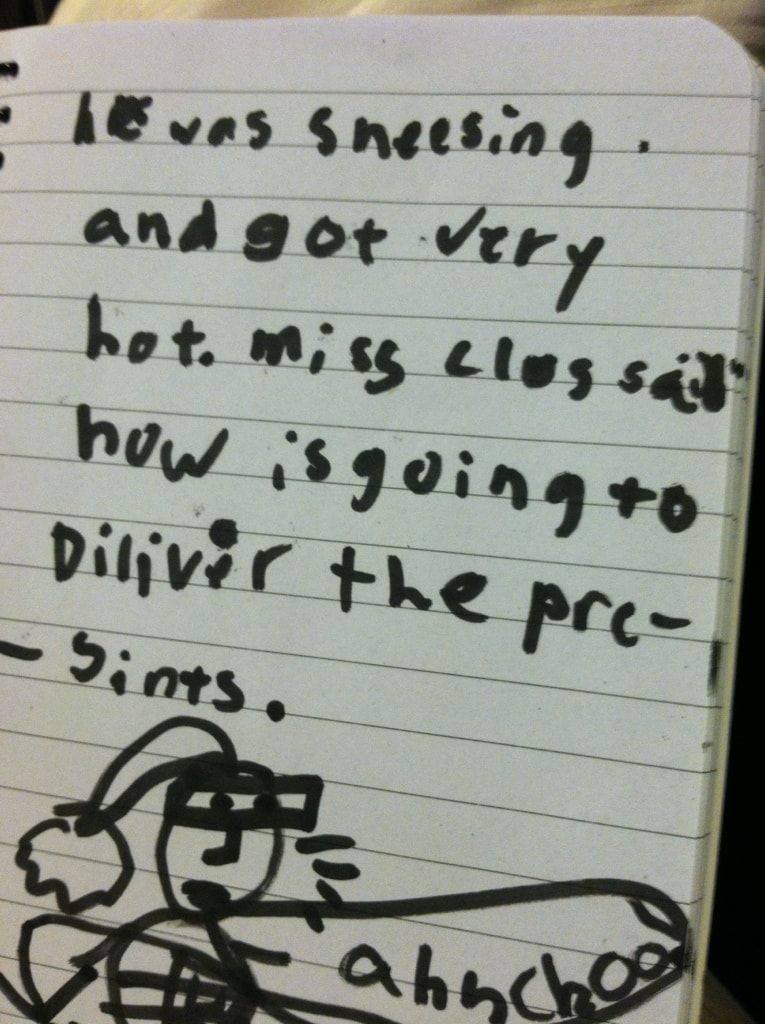 he was sneesing.
and got very
hot. miss clos said
how is going to
Diliver the pre-
- sints.
ahhchoo